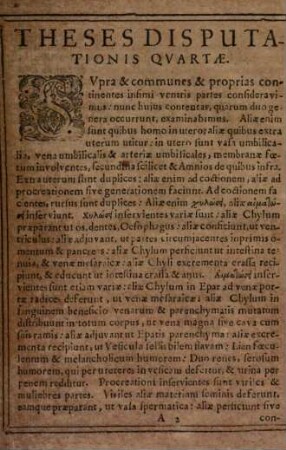 THESES DISPUTA-
TIONIS QVARTÆ.
SVpra & communes & proprias con-
tinentes infimi ventris partes consideravi-
mus: nunc hujus contentæ, quarum duo ge-
nera occurrunt, examinabimus. Aliæ enim
sunt quibus homo in utero: aliæ quibus extra
uterum utitur: in utero sunt vasa umbilica-
lia, vena umbilicalis & arteriæ umbilicales, membranæ fœ-
tum involventes, secundina scilicet & Amnios de quibus infra.
Extra uterum sunt duplices: aliæ enim ad coctionem; aliæ ad
procreationem sive generationem faciunt. Ad coctionem fa-
cientes, rursus sunt duplices: Aliæ enim χυλώσει, aliæ αἱματώσει
inserviunt. Χυλώσει inservientes variæ sunt: aliæ Chylum
præparant ut os, dentes, Oesophagus: aliæ conficiunt, ut ven-
triculus: aliæ adjuvant, ut partes circumjacentes inprimis o-
mentum & pancreas: aliæ Chylum perficiunt ut intestina te-
nuia, & venæ mesaraicæ: aliæ Chyli excrementa crassa reci-
piunt, & educunt ut intestina crassa & anus. Αἱματώσει in-
servientes sunt etiam variæ: aliæ Chylum in Epar ad venæ por-
tæ radices deferunt, ut venæ mesaraicæ: aliæ Chylum in
sanguinem beneficio venarum & parenchymatis mutatum
distribuunt in totum corpus, ut vena magna sive cava cum
suis ramis: aliæ adjuvant ut Epatis parenchyma: aliæ excre-
menta recipiunt, ut Vesicula fellis bilem flavam: Lien fœcu-
lentum & melancholicum humorem: Duo renes, serosum
humorem, qui per ureteres in vesicam defertur, & urina per
penem redditur. Procreationi inservientes sunt viriles &
muliebres partes. Viriles aliæ materiam seminis deferunt,
eamque præparant, ut vasa spermatica: aliæ perficiunt sive
A 2 con-